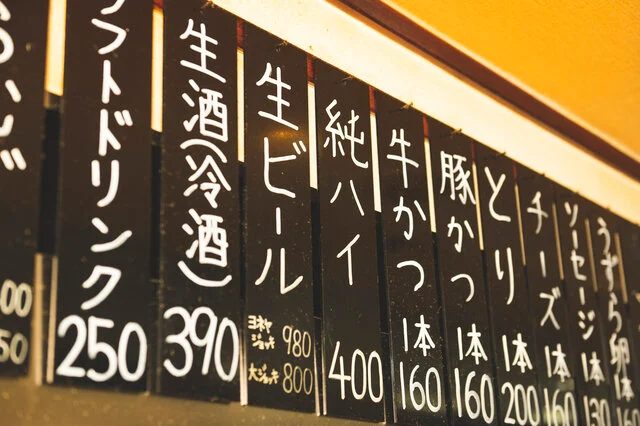 フトドリンク
250
生酒(冷酒)
390
生ビール
ヨネヤ
ジョッキ 980
大ジョッキ 800
純ハイ
400
牛かつ
1本
160
豚かつ
1本
160
とり
1本
200
チーズ
1本
160
ソーセージ
1本
130
うずら卵
1本
160